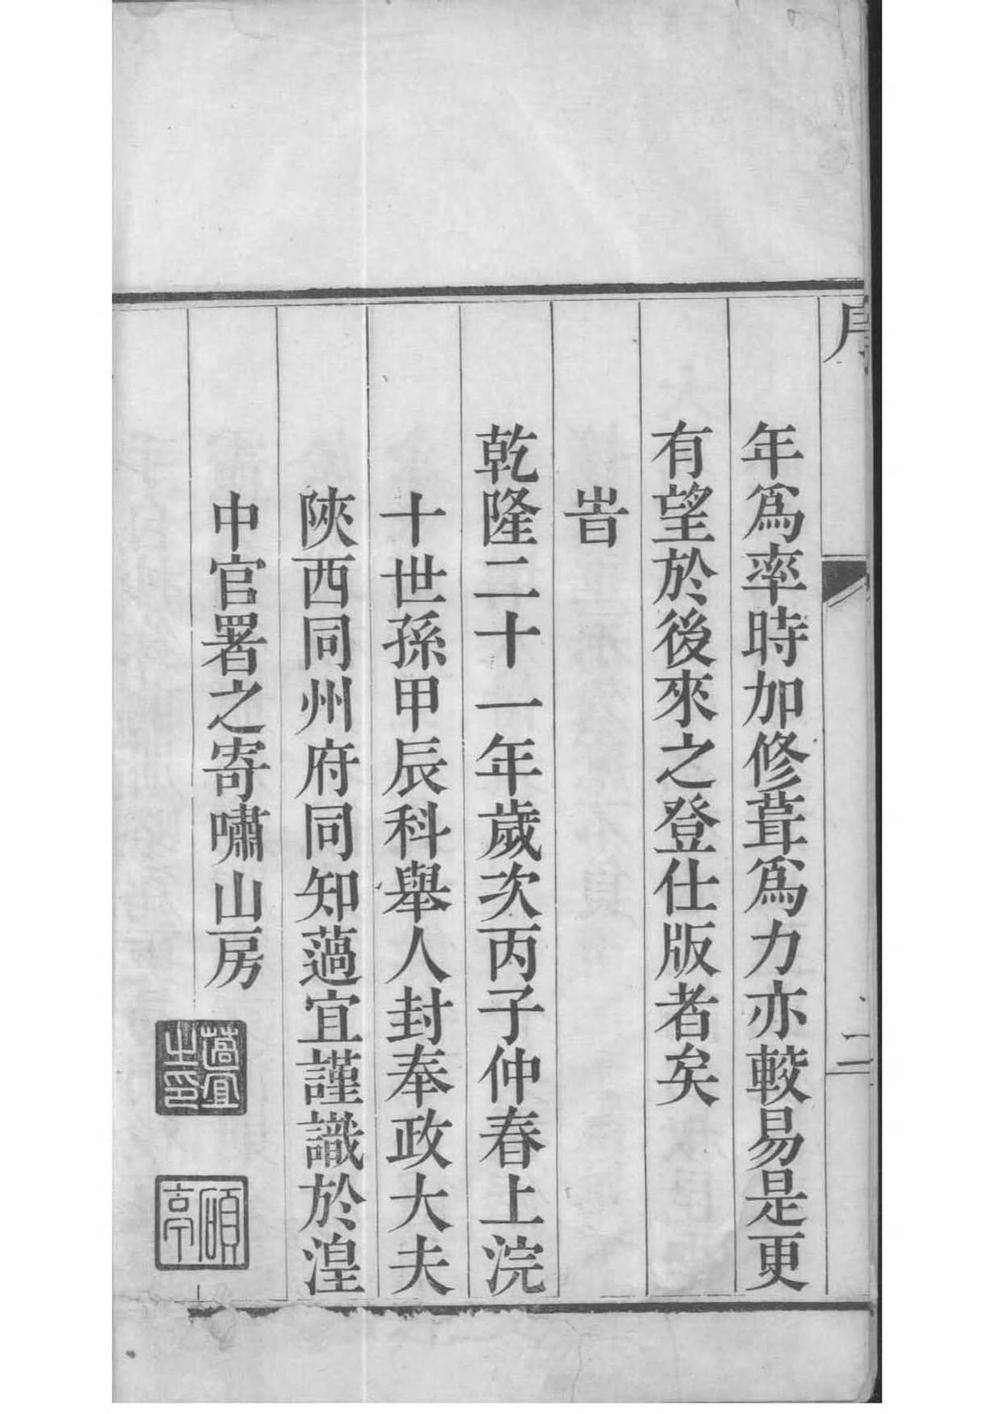 序
二
年爲率時加修葺爲力亦較易是更
有望於後來之登仕版者矣
旹
乾隆二十一年歲次丙子仲春上浣
十世孫甲辰科舉人封奉政大夫
陝西同州府同知薖宜謹識於湟
中官署之寄嘯山房
薖宜之印
碩亭